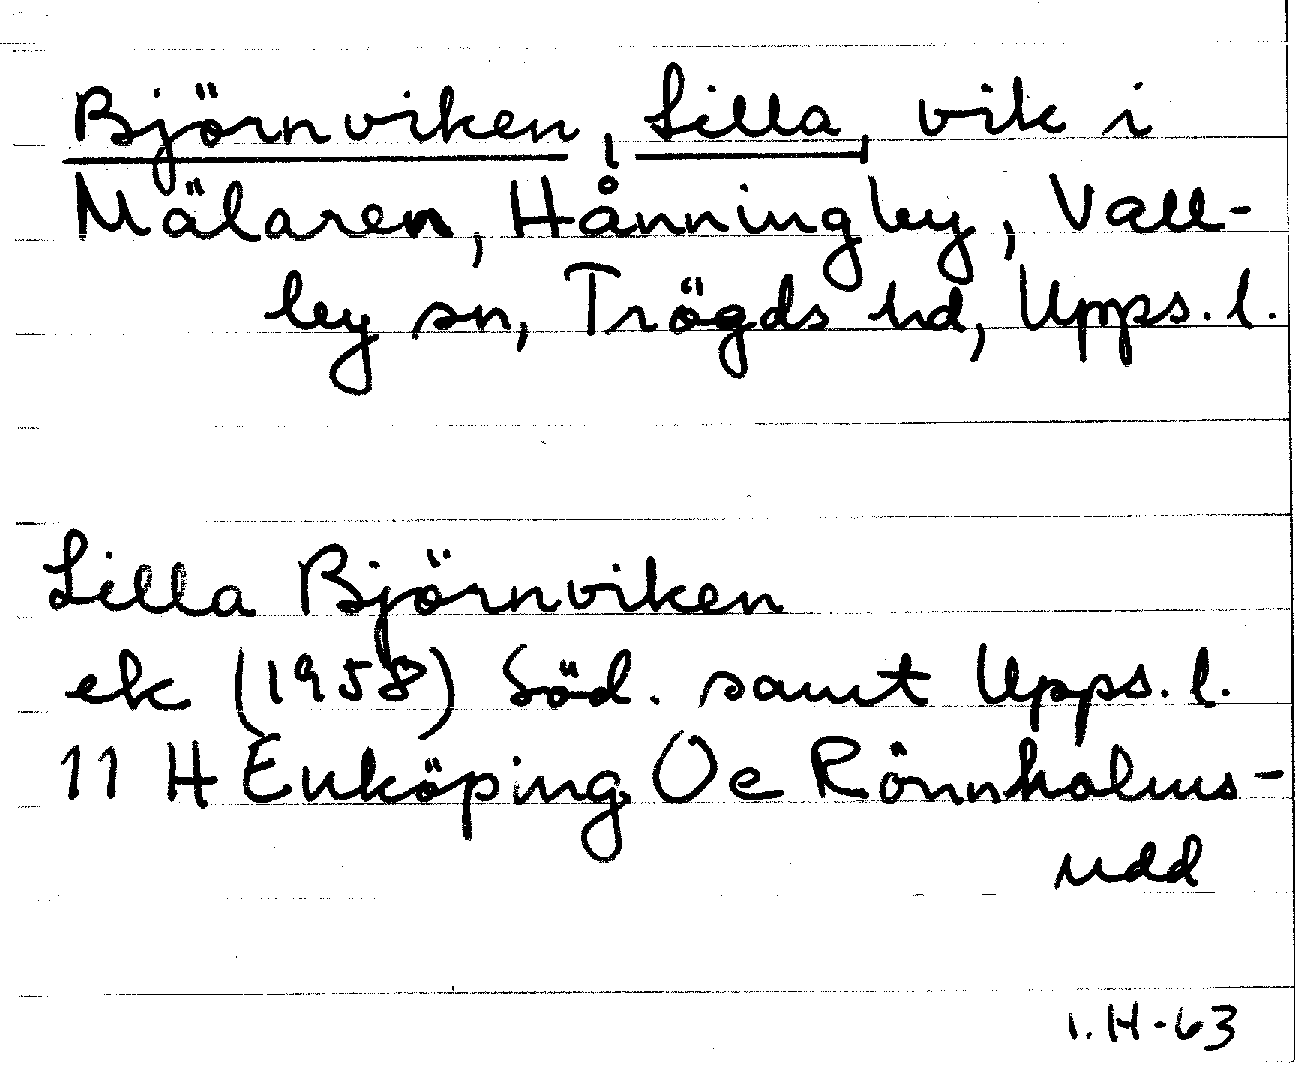 Björnviken, Lilla, vik i
Mälaren, Hånningby, Vall-
by sn, Trögds hd, Upps. l.
Lilla Björnviken
ek (1958) Söd. samt Upps. l.
11 H Enköping Oe Rönnholms-
udd
I. H-63